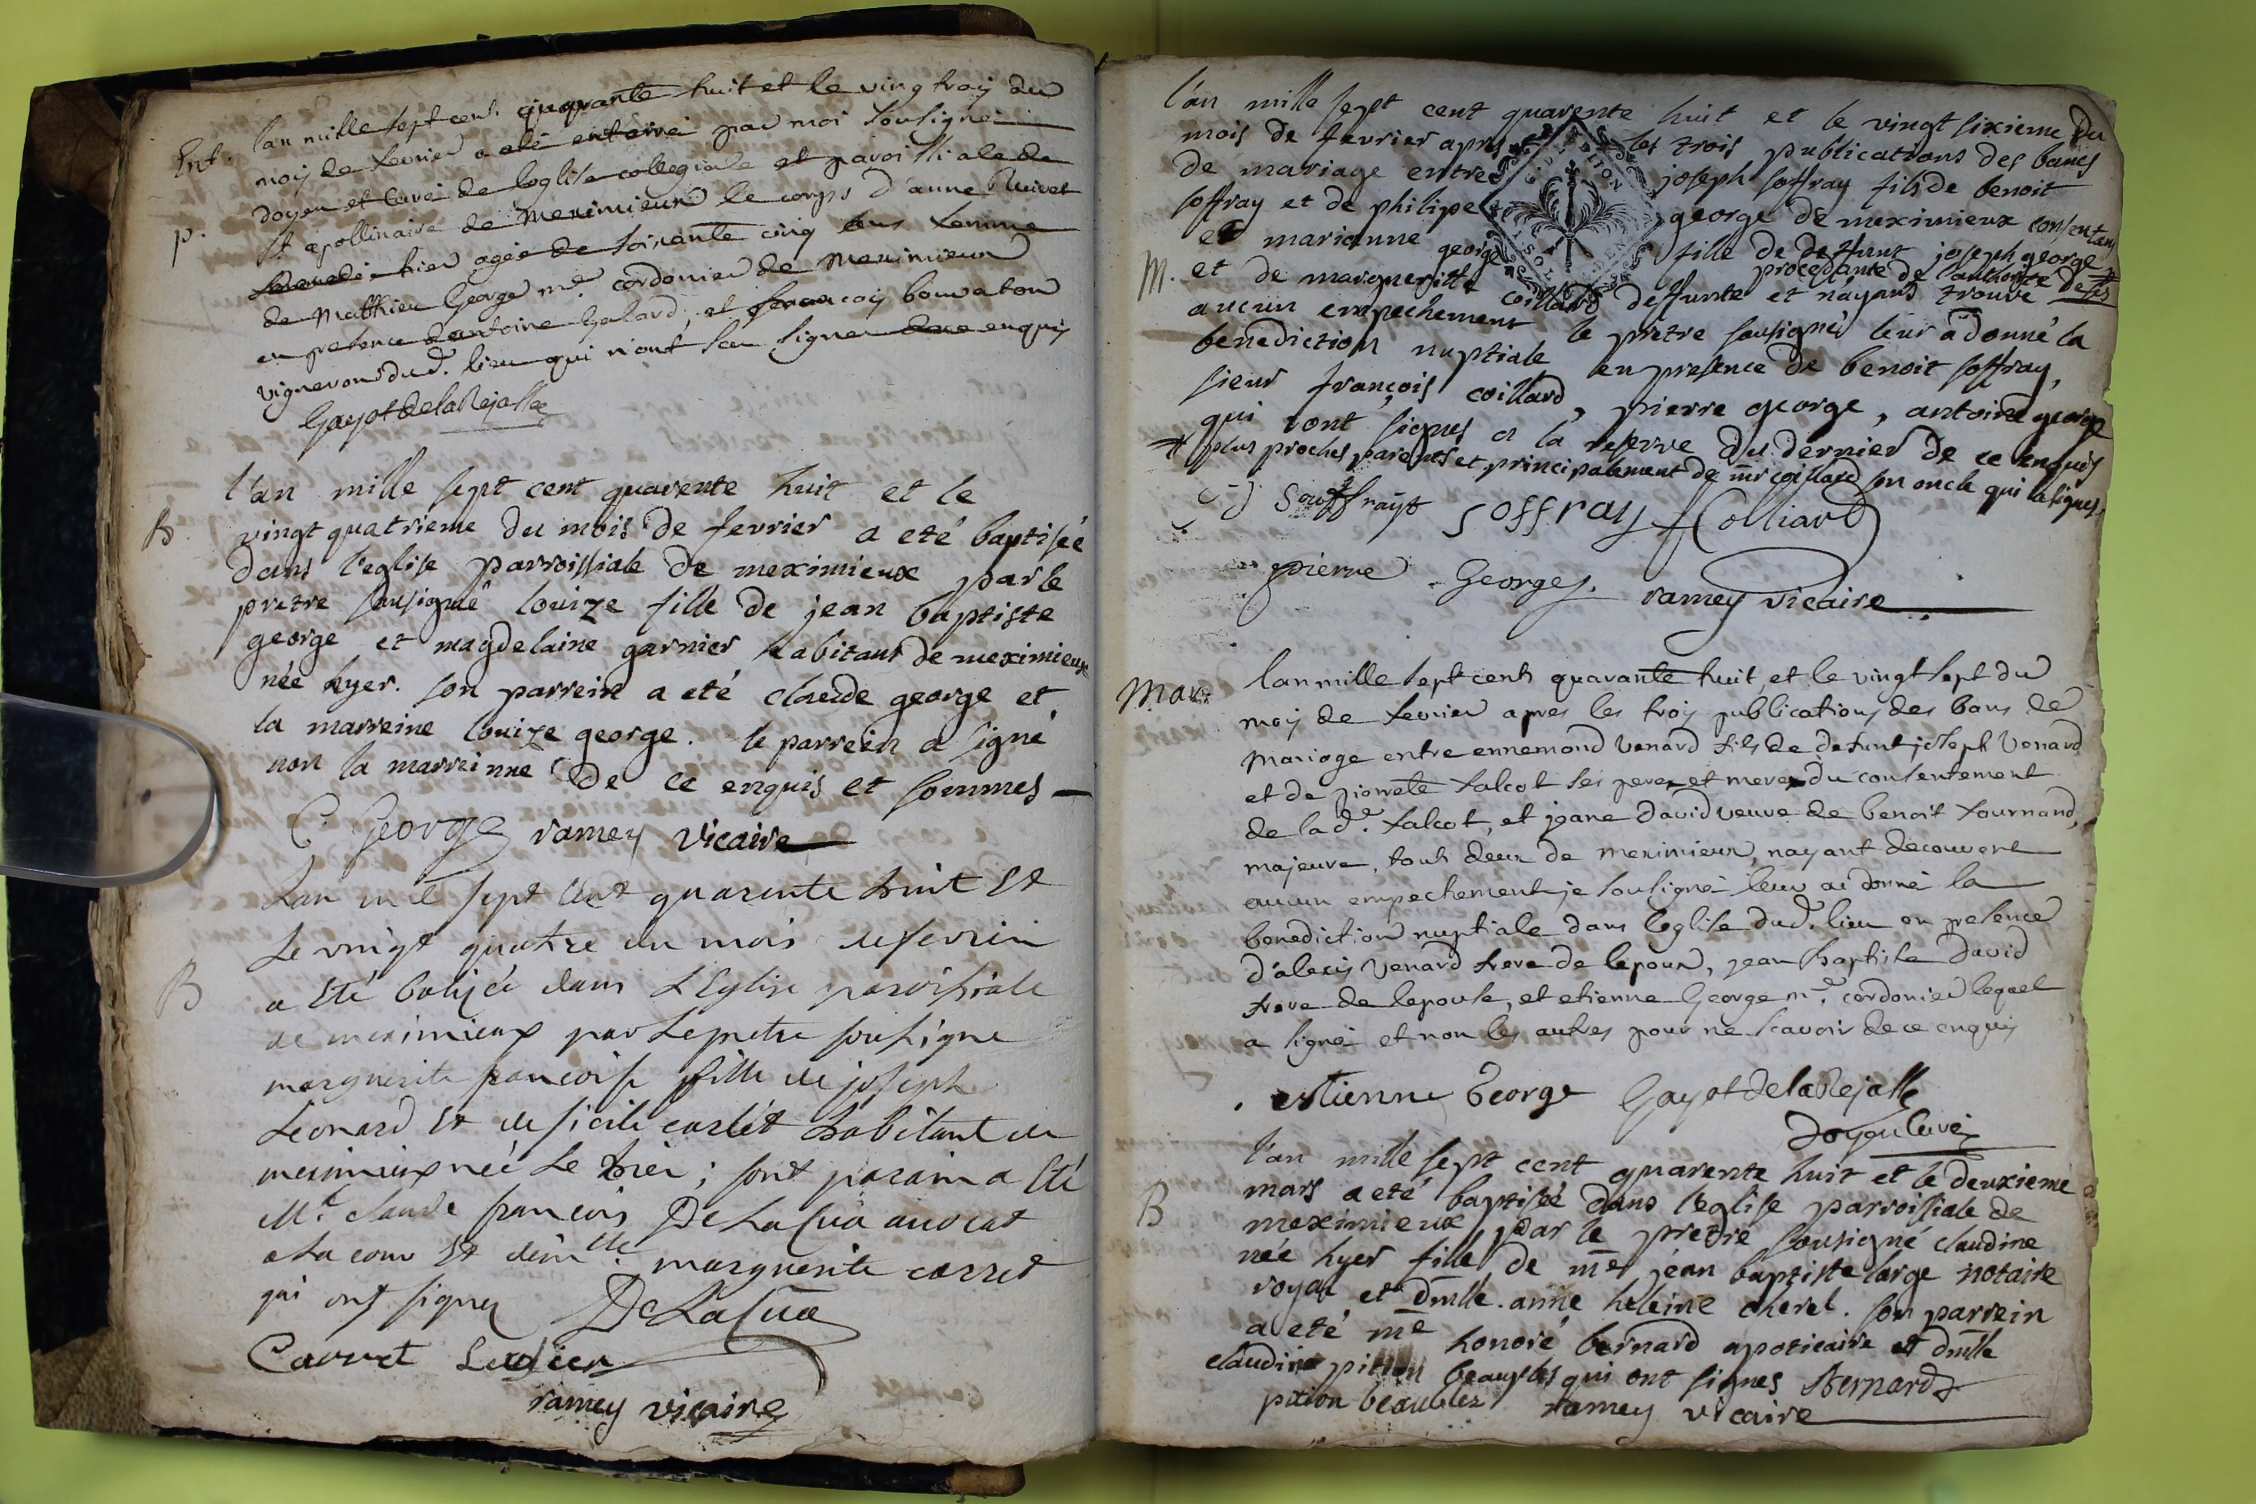 Ent.
p.
lan mille sept cent quarante huit et le ving troy du
moy de fevrier a eté enterré par moi sousigné
doyen et curé de leglise collegiale et paroissiale de
St apollinaire de Meximieux le corps d'anne
decedée hier agée de soixante cinq ans femme
de Matthieu George me cordonier de Meximieux
en presence d'antoine Galard, et francoy bouvaton
vignerons dud. lieu qui n'ont sceu signer de ce enquis
Gayot de la Rejasse
B.
l'an mille sept cent quarente huit et le
vingt quatrieme du mois de fevrier a eté baptisée
dans l'eglise parroissiale de meximieux par le
pretre sousigné louize fille de jean baptiste
george et magdelaine garnier habitant de meximieux
née hyer. son parrein a eté claude george et
la marreine louize george. le parrein a signé
non la marreinne de ce enquis et sommes
C. George ramey vicaire
B
Lan mil sept cent quarente huit et
Le vingt quatre du mois de fevrier
a eté batisée dans L'Eglise paroissiale
de meximieux par Le pretre sousigne
marguerite francoise fille de joseph
Leonard et de sicile carlet habitant de
meximieux née Le hier ; sont parain a Eté
Mr. claude francois De La Cua avocat
a La cour et demlle. marguerite carret
qui ont signez De La Cua
Carret
ramey vicaire
M.
l'an mille sept cent quarente huit et le vingt sixieme du
mois de fevrier apres les trois publications des bancs
de mariage entre joseph soffray fils de benoit
soffray et de philipe george de meximieux consentans
et marianne george fille de deffunt joseph george
et de margueritte coillard deffunte procedante de l'authorité de ses #
et n'ayant trouvé
aucun empechement le pretre sousigné leur a donné la
benediction nuptiale en presence de benoit soffray,
sieur françois coillard, pierre george, antoine george
qui ont signes a la reserve du dernier de ce enquis
# plus proches parents et principalement de mr coillard son oncle qui a signés
Souffrayt soffray f Colliard
pierre Georges. ramey vicaire
Mar:
lan mille sept cents quarante huit, et le vingt sept du
moy de fevrier apres les troy publications des bans de
mariage entre ennemond venard fils de defunt joseph venard
et de pierrete falcot ses pere et mere du consentement
de lad.e falcot, et jeane david veuve de benoit fournand,
majeure, touts deux de meximieux, nayant decouvert
aucun empechement je sousigné leur ai donné la
benediction nuptiale dans leglise dud. lieu en presence
d'alexis venard frere de lepoux, jean baptiste david
frere de lepouse, et etienne George me. cordonier lequel
a signé et non les autres pour ne scavoir de ce enquis
estienne George Gayot de la Rejasse
doyen curé
B
l'an mille sept cent quarente huit et le deuxieme
mars a eté baptisée dans l'eglise parroissiale de
meximieux par le pretre sousigné claudine
née hyer fille de me jean baptiste large notaire
royal et dmlle. anne heleine cheret. son parrein
a eté me honoré bernard apoticaire et dmlle
claudine pition beaublés qui ont signes Bernard
pition beaublez ramey vicaire